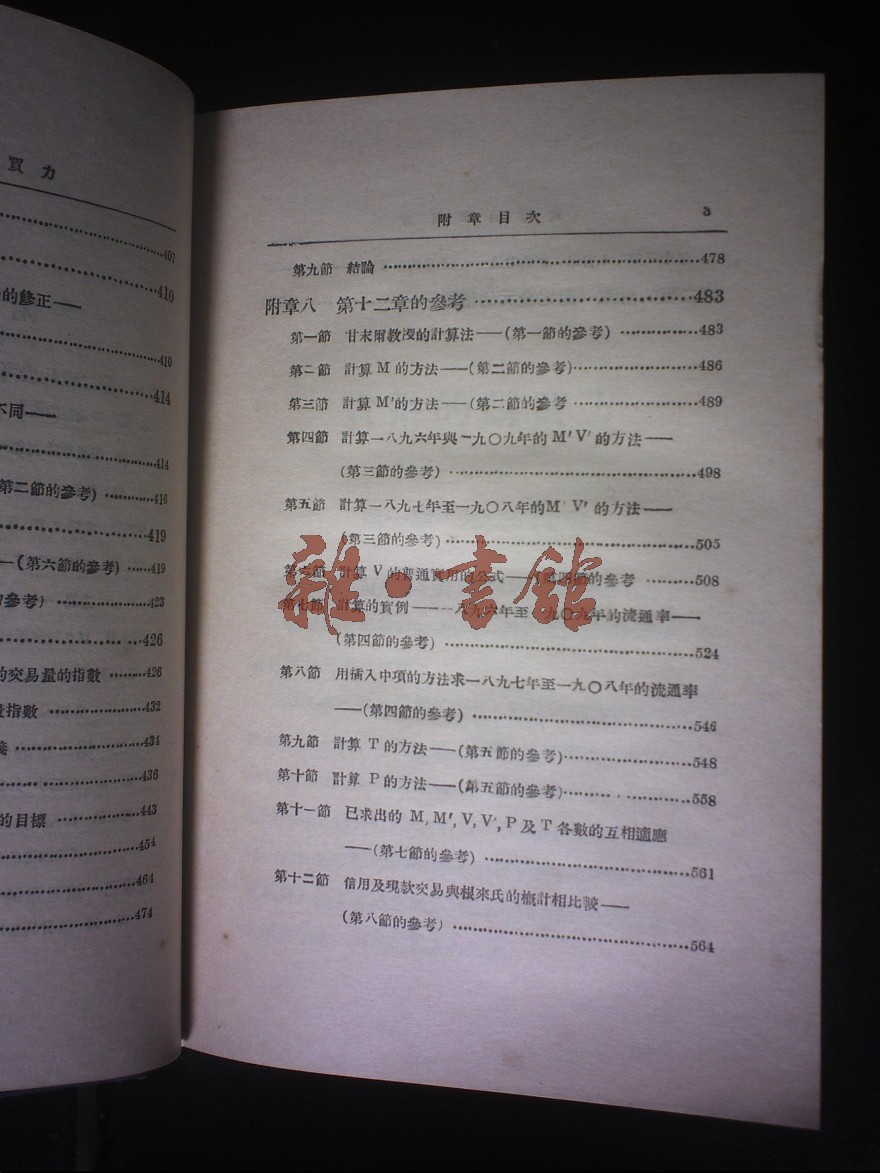 買力
407
410
的修正——
410
414
不同——
414
第二節的參考) 416
419
—(第六節的參考) 419
的參考) 423
426
的交易量的指數 426
量指數 432
434
436
的目標 443
454
464
474
附章目次 3
第九節 結論 478
附章八 第十二章的參考 483
第一節 甘末爾教授的計算法——(第一節的參考) 483
第二節 計算 M 的方法——(第二節的參考) 486
第三節 計算 M′的方法——(第二節的參考 489
第四節 計算一八九六年與一九〇九年的 M′V′的方法——
(第三節的參考) 498
第五節 計算一八九七年至一九〇八年的M′V′的方法——
(第三節的參考) 505
第六節 計算 V 的普通實用的公式——(第四節的參考 508
第七節 計算的實例——一八九六年至一九〇九年的流通率——
(第四節的參考) 524
第八節 用插入中項的方法求一八九七年至一九〇八年的流通率
——(第四節的參考) 546
第九節 計算 T 的方法——(第五節的參考) 548
第十節 計算 P 的方法——(第五節的參考) 558
第十一節 已求出的 M, M′, V, V′, P 及 T 各數的互相適應
——(第七節的參考) 561
第十二節 信用及現款交易與根來氏的概計相比較——
(第八節的參考) 564
雜·書館